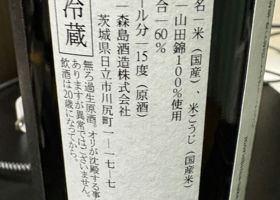 名―米(国産)、米こうじ(国産米)
―山田錦100%使用
合―60%
ール分―15度(原酒)
―森島酒造株式会社
茨城県日立市川尻町一―一七―七
冷蔵
無ろ過生原酒。オリが沈殿する事が
ありますが異常ではございません。
飲酒は20歳になってから。